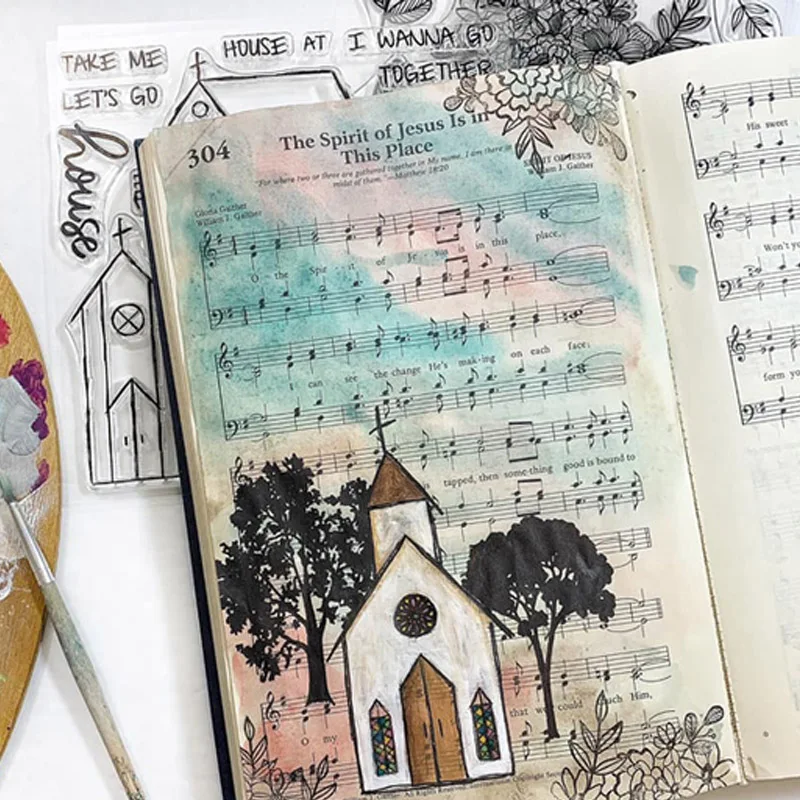 TAKE ME
HOUSE AT I WANNA GO
LET'S GO
TOGETHER
house
304
The Spirit of Jesus Is in
This Place
"For where two or three are gathered together in My name, I am there in
midst of them."—Matthew 18:20
Gloria Gaither
William J. Gaither
SPIRIT OF JESUS
William J. Gaither
O the Spir - it of Je - sus is in this place,
I can see the change He's mak-ing on each face;
tapped, then some-thing good is bound to
O my
that we could Him,
His sweet
Won't yo
form yo